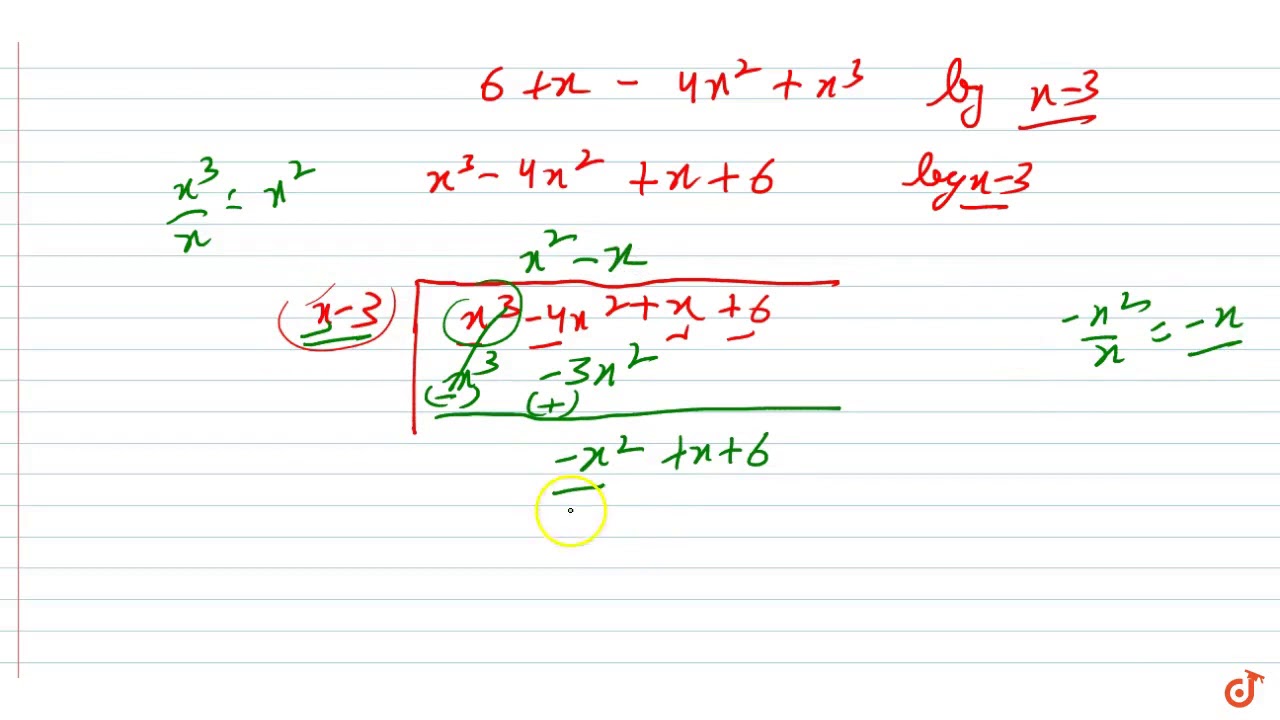 6 + x - 4x² + x³ by x-3
x³ - 4x² + x + 6 by x-3
x³/x = x²
x² - x
x-3
x³ - 4x² + x + 6
x³ - 3x²
(-) (+)
-x² + x + 6
-x²/x = -x